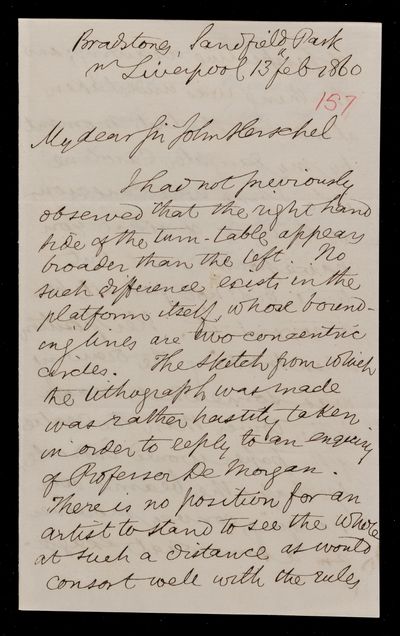 Bradstones, Sandfield Park
nr Liverpool 13 feb 1860
157
My dear Sir John Herschel
I had not previously
observed that the right hand
side of the turn-table appears
broader than the left. No
such difference exists in the
platform itself, whose bound-
ing lines are two concentric
circles. The sketch from which
the lithograph was made
was rather hastily taken
in order to reply to an enquiry
of Professor De Morgan.
There is no position for an
artist to stand to see the whole
at such a distance as would
consort well with the rules